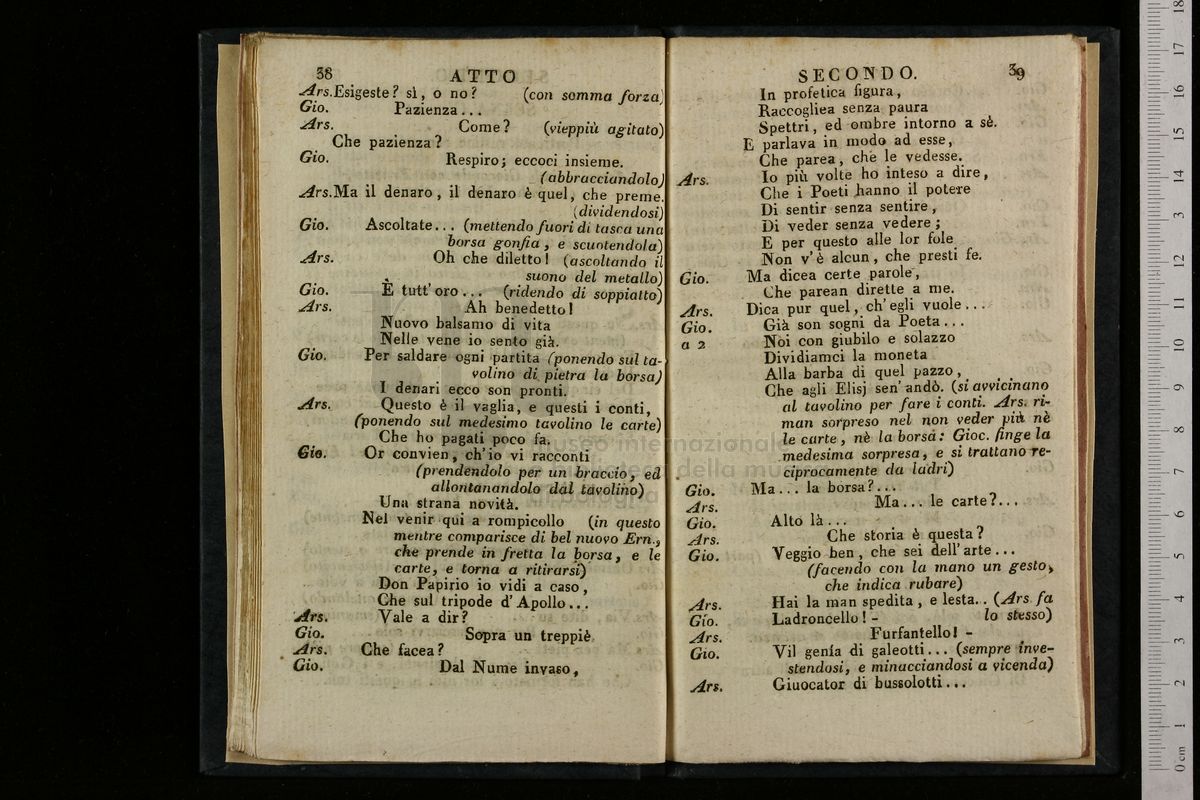 38
ATTO
Ars. Esigeste? sì, o no? (con somma forza)
Gio. Pazienza...
Ars. Come? (vieppiù agitato)
Che pazienza?
Gio. Respiro; eccoci insieme.
(abbracciandolo)
Ars. Ma il denaro, il denaro è quel, che preme.
(dividendosi)
Gio. Ascoltate... (mettendo fuori di tasca una
borsa gonfia, e scuotendola)
Ars. Oh che diletto! (ascoltando il
suono del metallo)
Gio. È tutt' oro... (ridendo di soppiatto)
Ars. Ah benedetto!
Nuovo balsamo di vita
Nelle vene io sento già.
Gio. Per saldare ogni partita (ponendo sul ta-
volino di pietra la borsa)
I denari ecco son pronti.
Ars. Questo è il vaglia, e questi i conti,
(ponendo sul medesimo tavolino le carte)
Che ho pagati poco fa.
Gio. Or convien, ch'io vi racconti
(prendendolo per un braccio, ed
allontanandolo dal tavolino)
Una strana novità.
Nel venir qui a rompicollo (in questo
mentre comparisce di bel nuovo Ern.,
che prende in fretta la borsa, e le
carte, e torna a ritirarsi)
Don Papirio io vidi a caso,
Che sul tripode d' Apollo...
Ars. Vale a dir?
Gio. Sopra un treppiè.
Ars. Che facea?
Gio. Dal Nume invaso,
SECONDO.
39
In profetica figura,
Raccogliea senza paura
Spettri, ed ombre intorno a sè.
E parlava in modo ad esse,
Che parea, che le vedesse.
Ars. Io più volte ho inteso a dire,
Che i Poeti hanno il potere
Di sentir senza sentire,
Di veder senza vedere;
E per questo alle lor fole
Non v'è alcun, che presti fe.
Gio. Ma dicea certe parole,
Che parean dirette a me.
Ars. Dica pur quel, ch'egli vuole...
Gio. Già son sogni da Poeta...
a 2 Noi con giubilo e solazzo
Dividiamci la moneta
Alla barba di quel pazzo,
Che agli Elisj sen' andò. (si avvicinano
al tavolino per fare i conti. Ars. ri-
man sorpreso nel non veder più nè
le carte, nè la borsa: Gioc. finge la
medesima sorpresa, e si trattano re-
ciprocamente da ladri)
Gio. Ma... la borsa?...
Ars. Ma... le carte?...
Gio. Alto là...
Ars. Che storia è questa?
Gio. Veggio ben, che sei dell' arte...
(facendo con la mano un gesto,
che indica rubare)
Ars. Hai la man spedita, e lesta.. (Ars. fa
lo stesso)
Gio. Ladroncello! -
Ars. Furfantello! -
Gio. Vil genía di galeotti... (sempre inve-
stendosi, e minacciandosi a vicenda)
Ars. Giuocator di bussolotti...